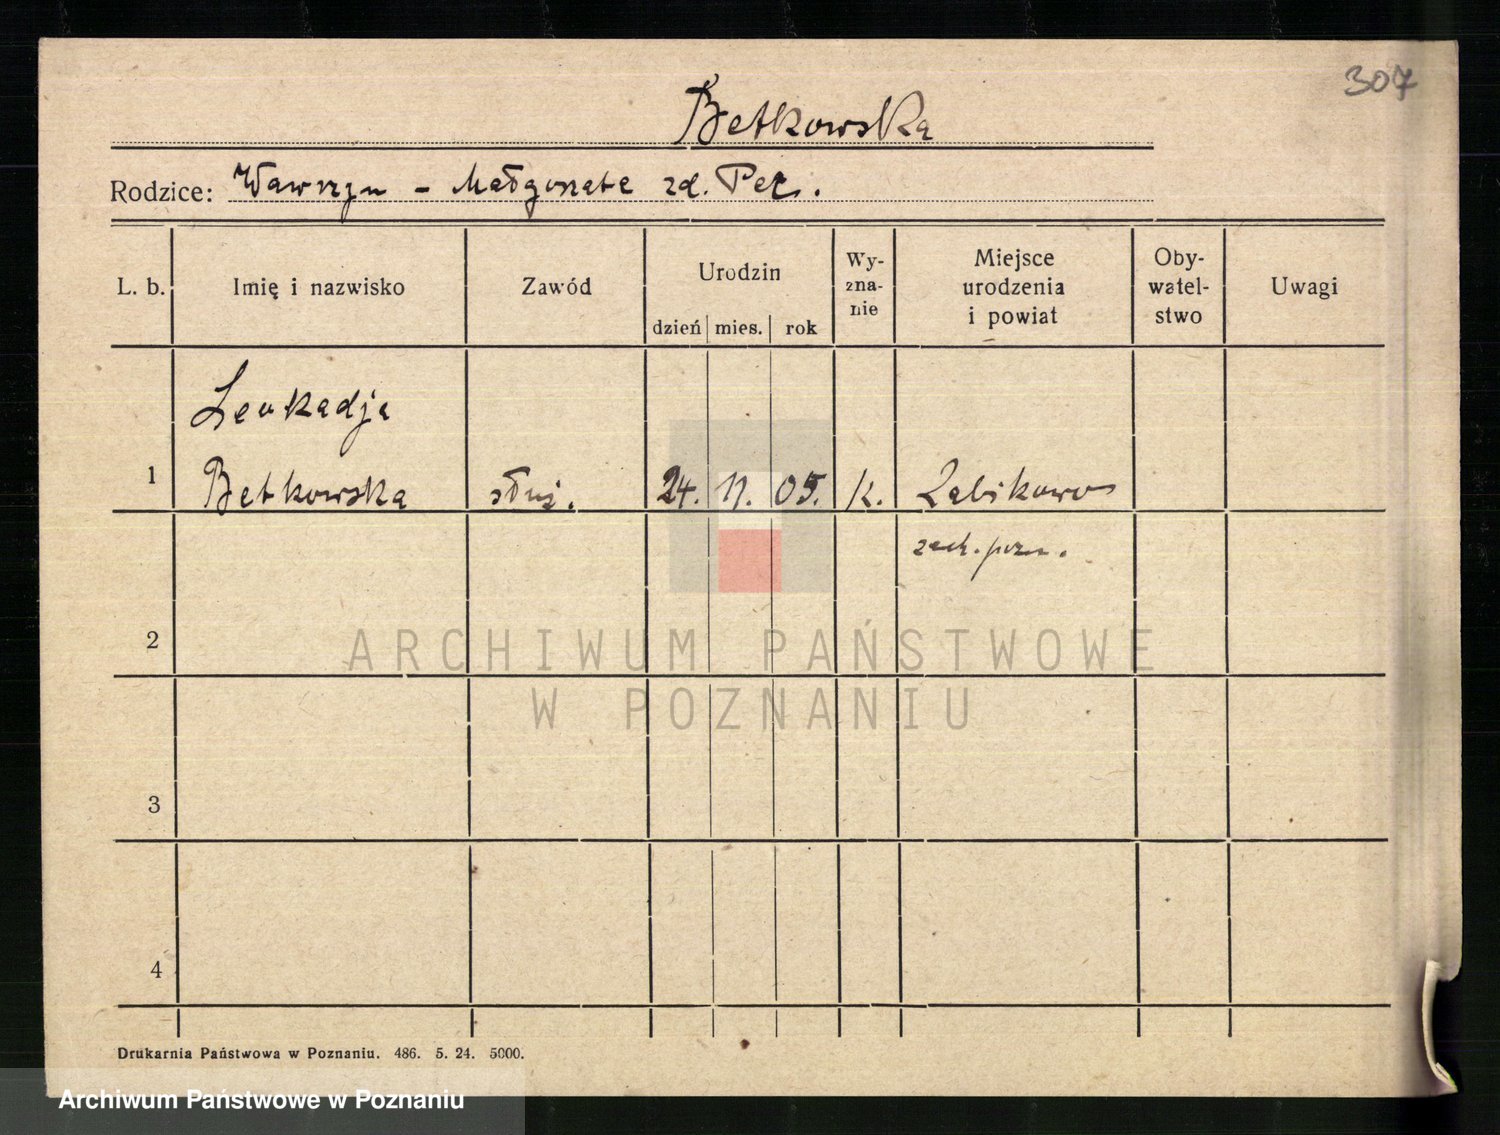 307
Betkowska
Rodzice: Wawrzyn - Małgorzata zd. Pec.
L. b. Imię i nazwisko Zawód Urodzin dzień mies. rok Wy-zna-nie Miejsce urodzenia i powiat Oby-watel-stwo Uwagi
Leokadja
1 Betkowska służ. 24. 11. 05. K. Żabikowo
zach. pozn.
2
ARCHIWUM PAŃSTWOWE
W POZNANIU
3
4
Drukarnia Państwowa w Poznaniu. 486. 5. 24. 5000.
Archiwum Państwowe w Poznaniu